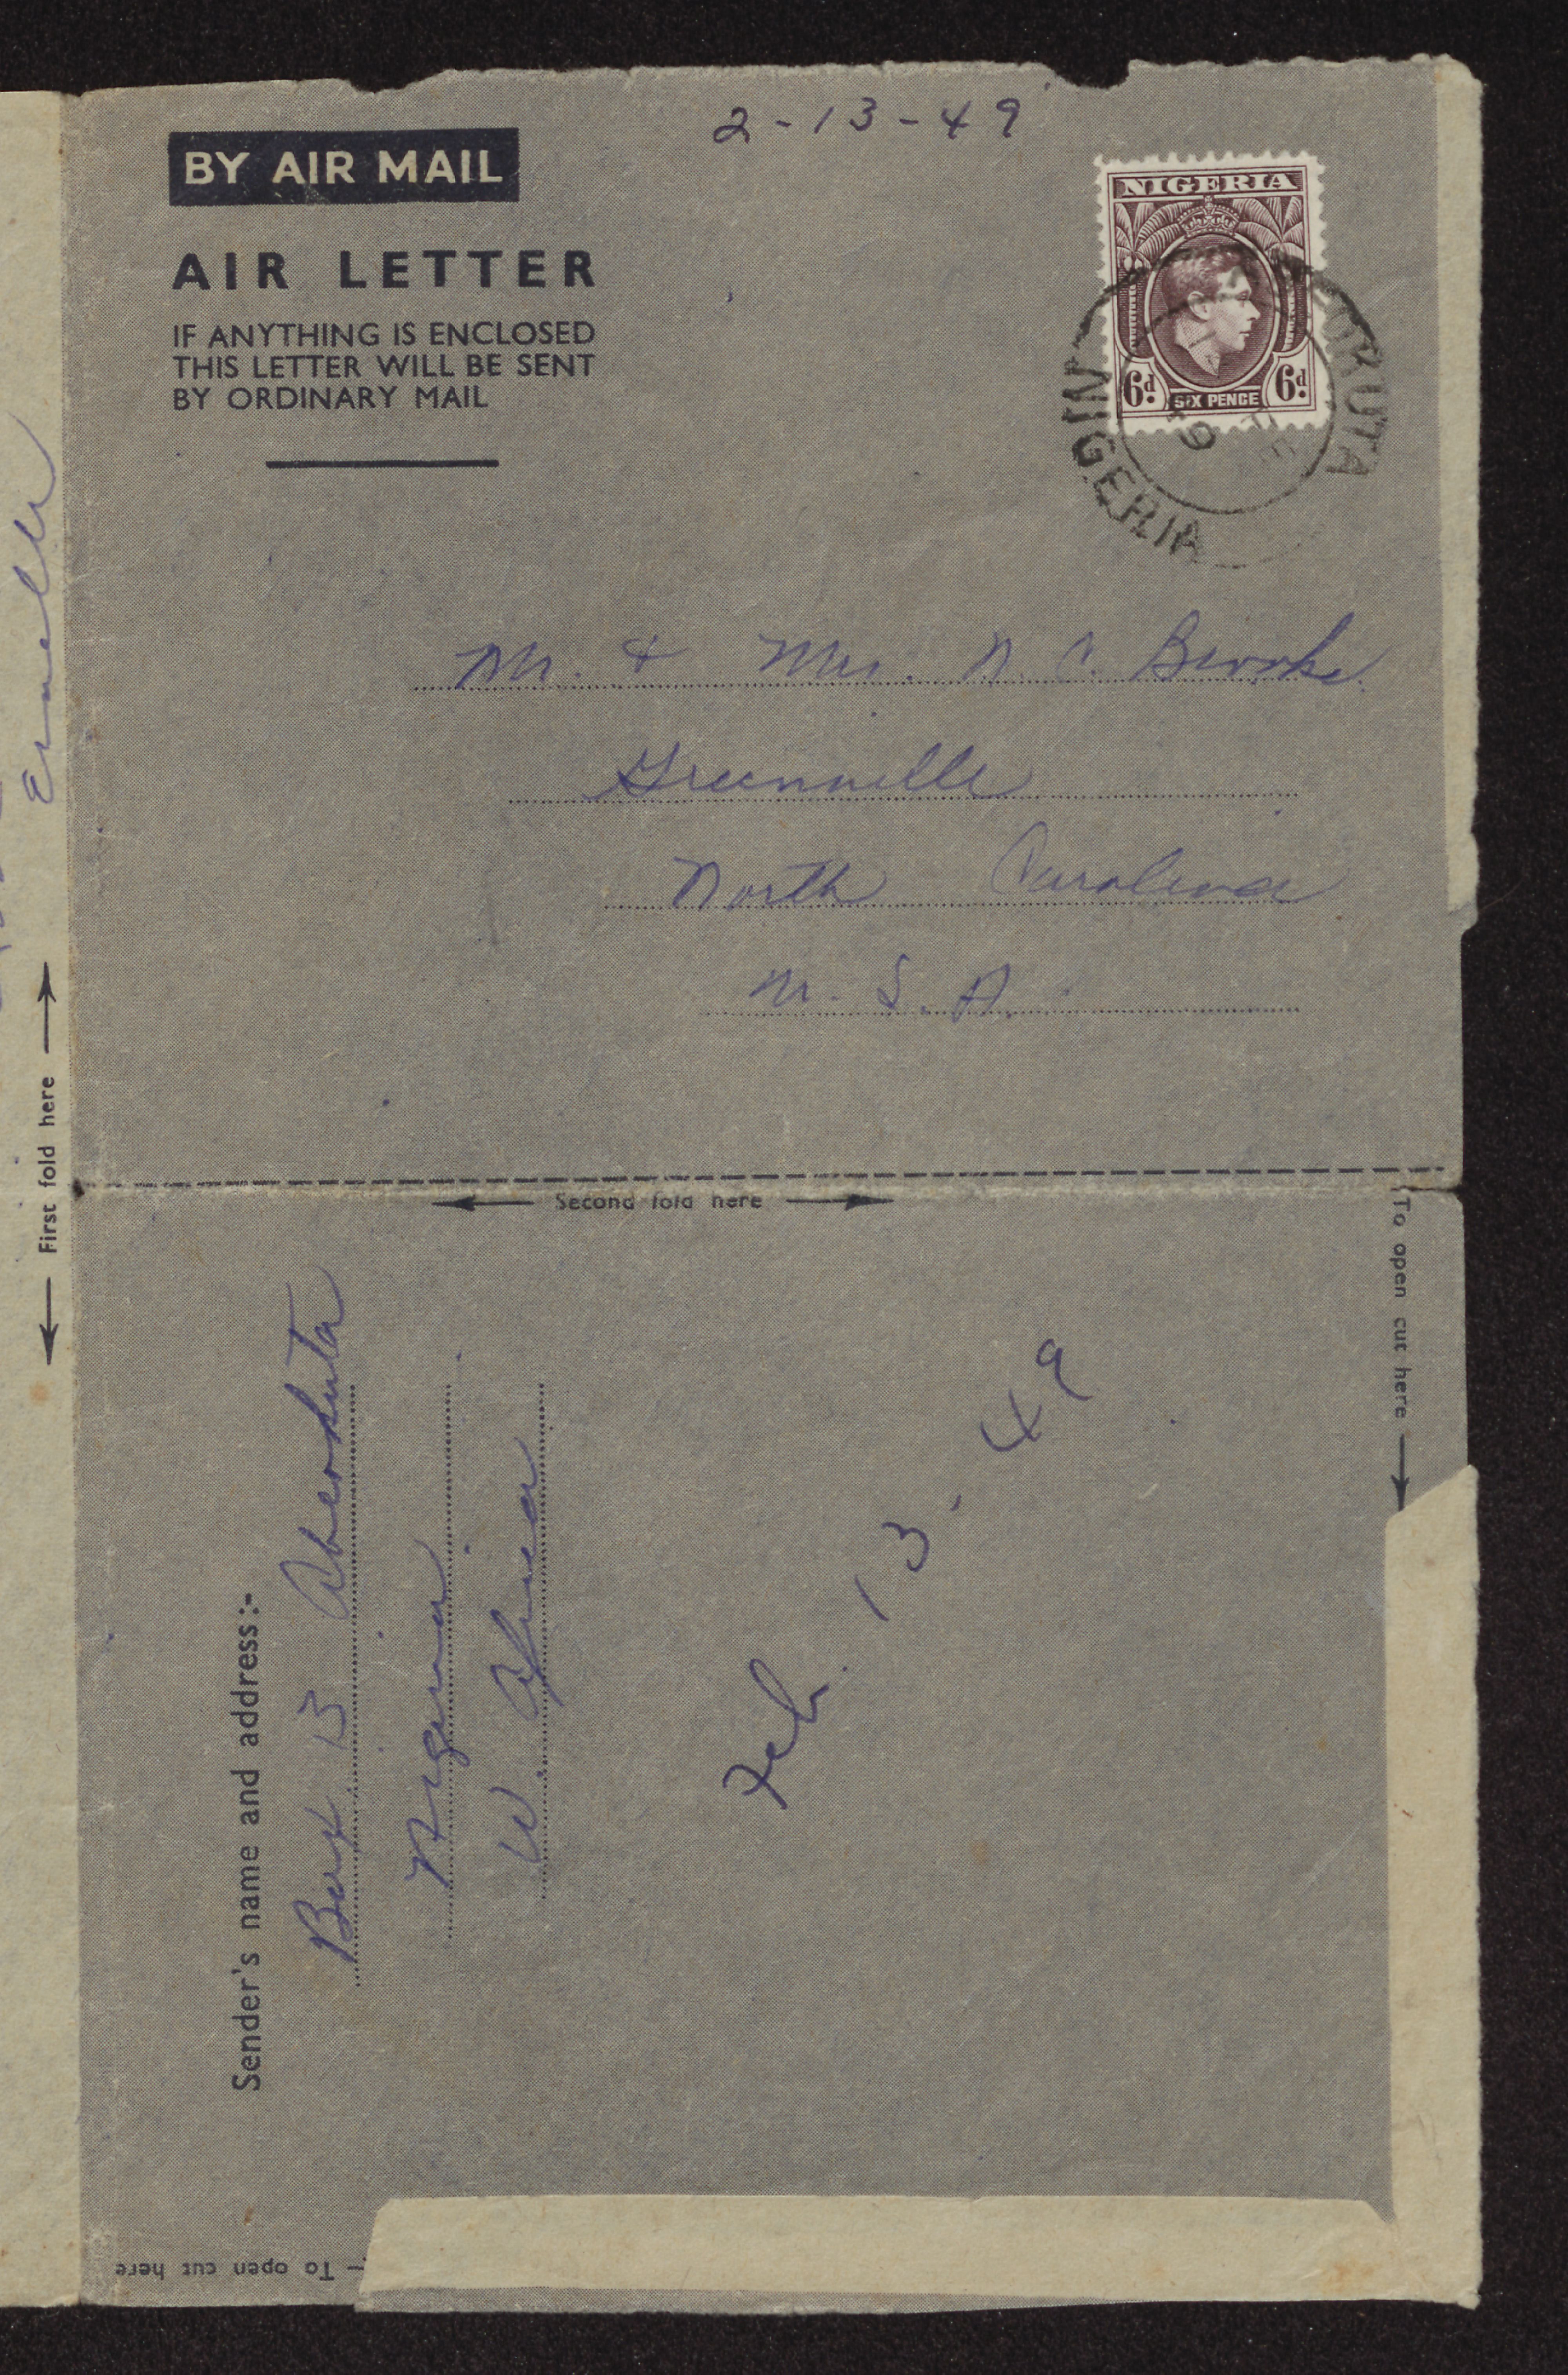 2-13-49
BY AIR MAIL
AIR LETTER
IF ANYTHING IS ENCLOSED
THIS LETTER WILL BE SENT
BY ORDINARY MAIL
NIGERIA
6d SIX PENCE 6d
NIGERIA
Mr. & Mrs. N. C. Brooks
Greenville
North Carolina
U. S. A.
First fold here
Second fold here
To open cut here
Sender's name and address:-
Box 13 Abeokuta
Nigeria
W. Africa
Feb. 13-49
To open cut here